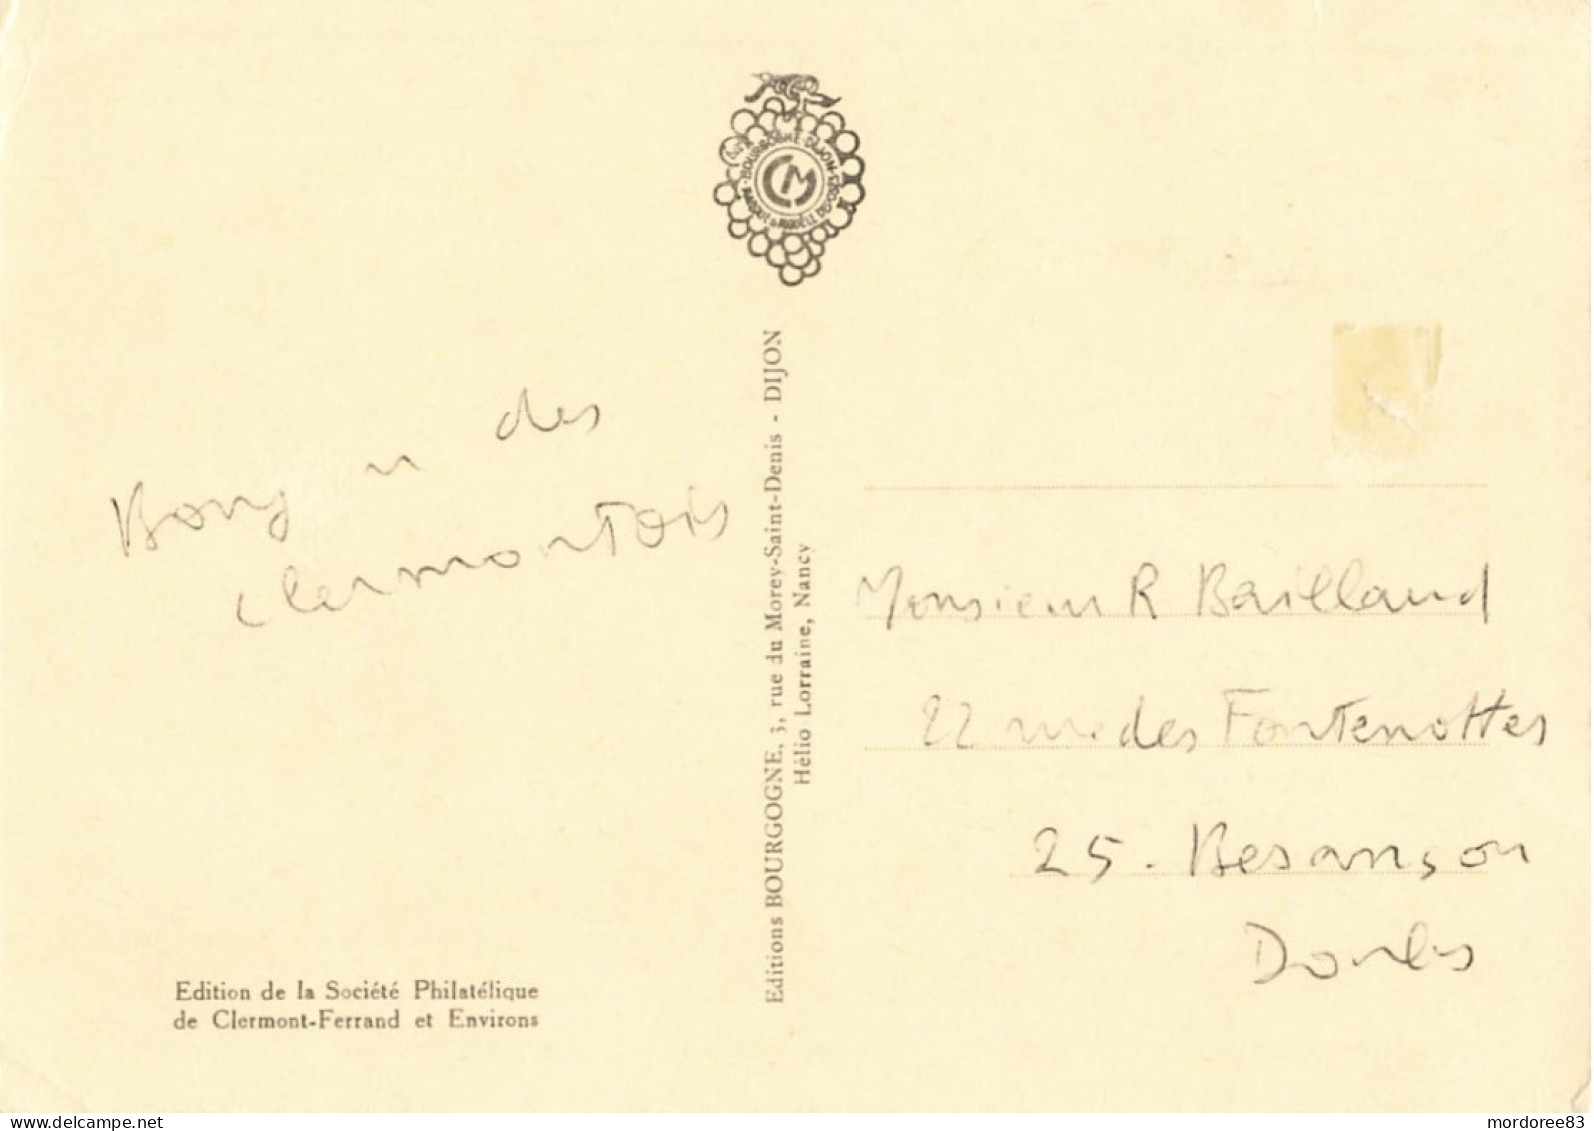 BOURGOGNE - DIJON
CM
Bonj u des
clermontois
Editions BOURGOGNE, 3, rue du Morey-Saint-Denis - DIJON
Hélio-Lorraine, Nancy
Monsieur R Bailland
22 rue des Fontenottes
25. Besançon
Doubs
Edition de la Société Philatélique
de Clermont-Ferrand et Environs
delcampe.net
mordoree83